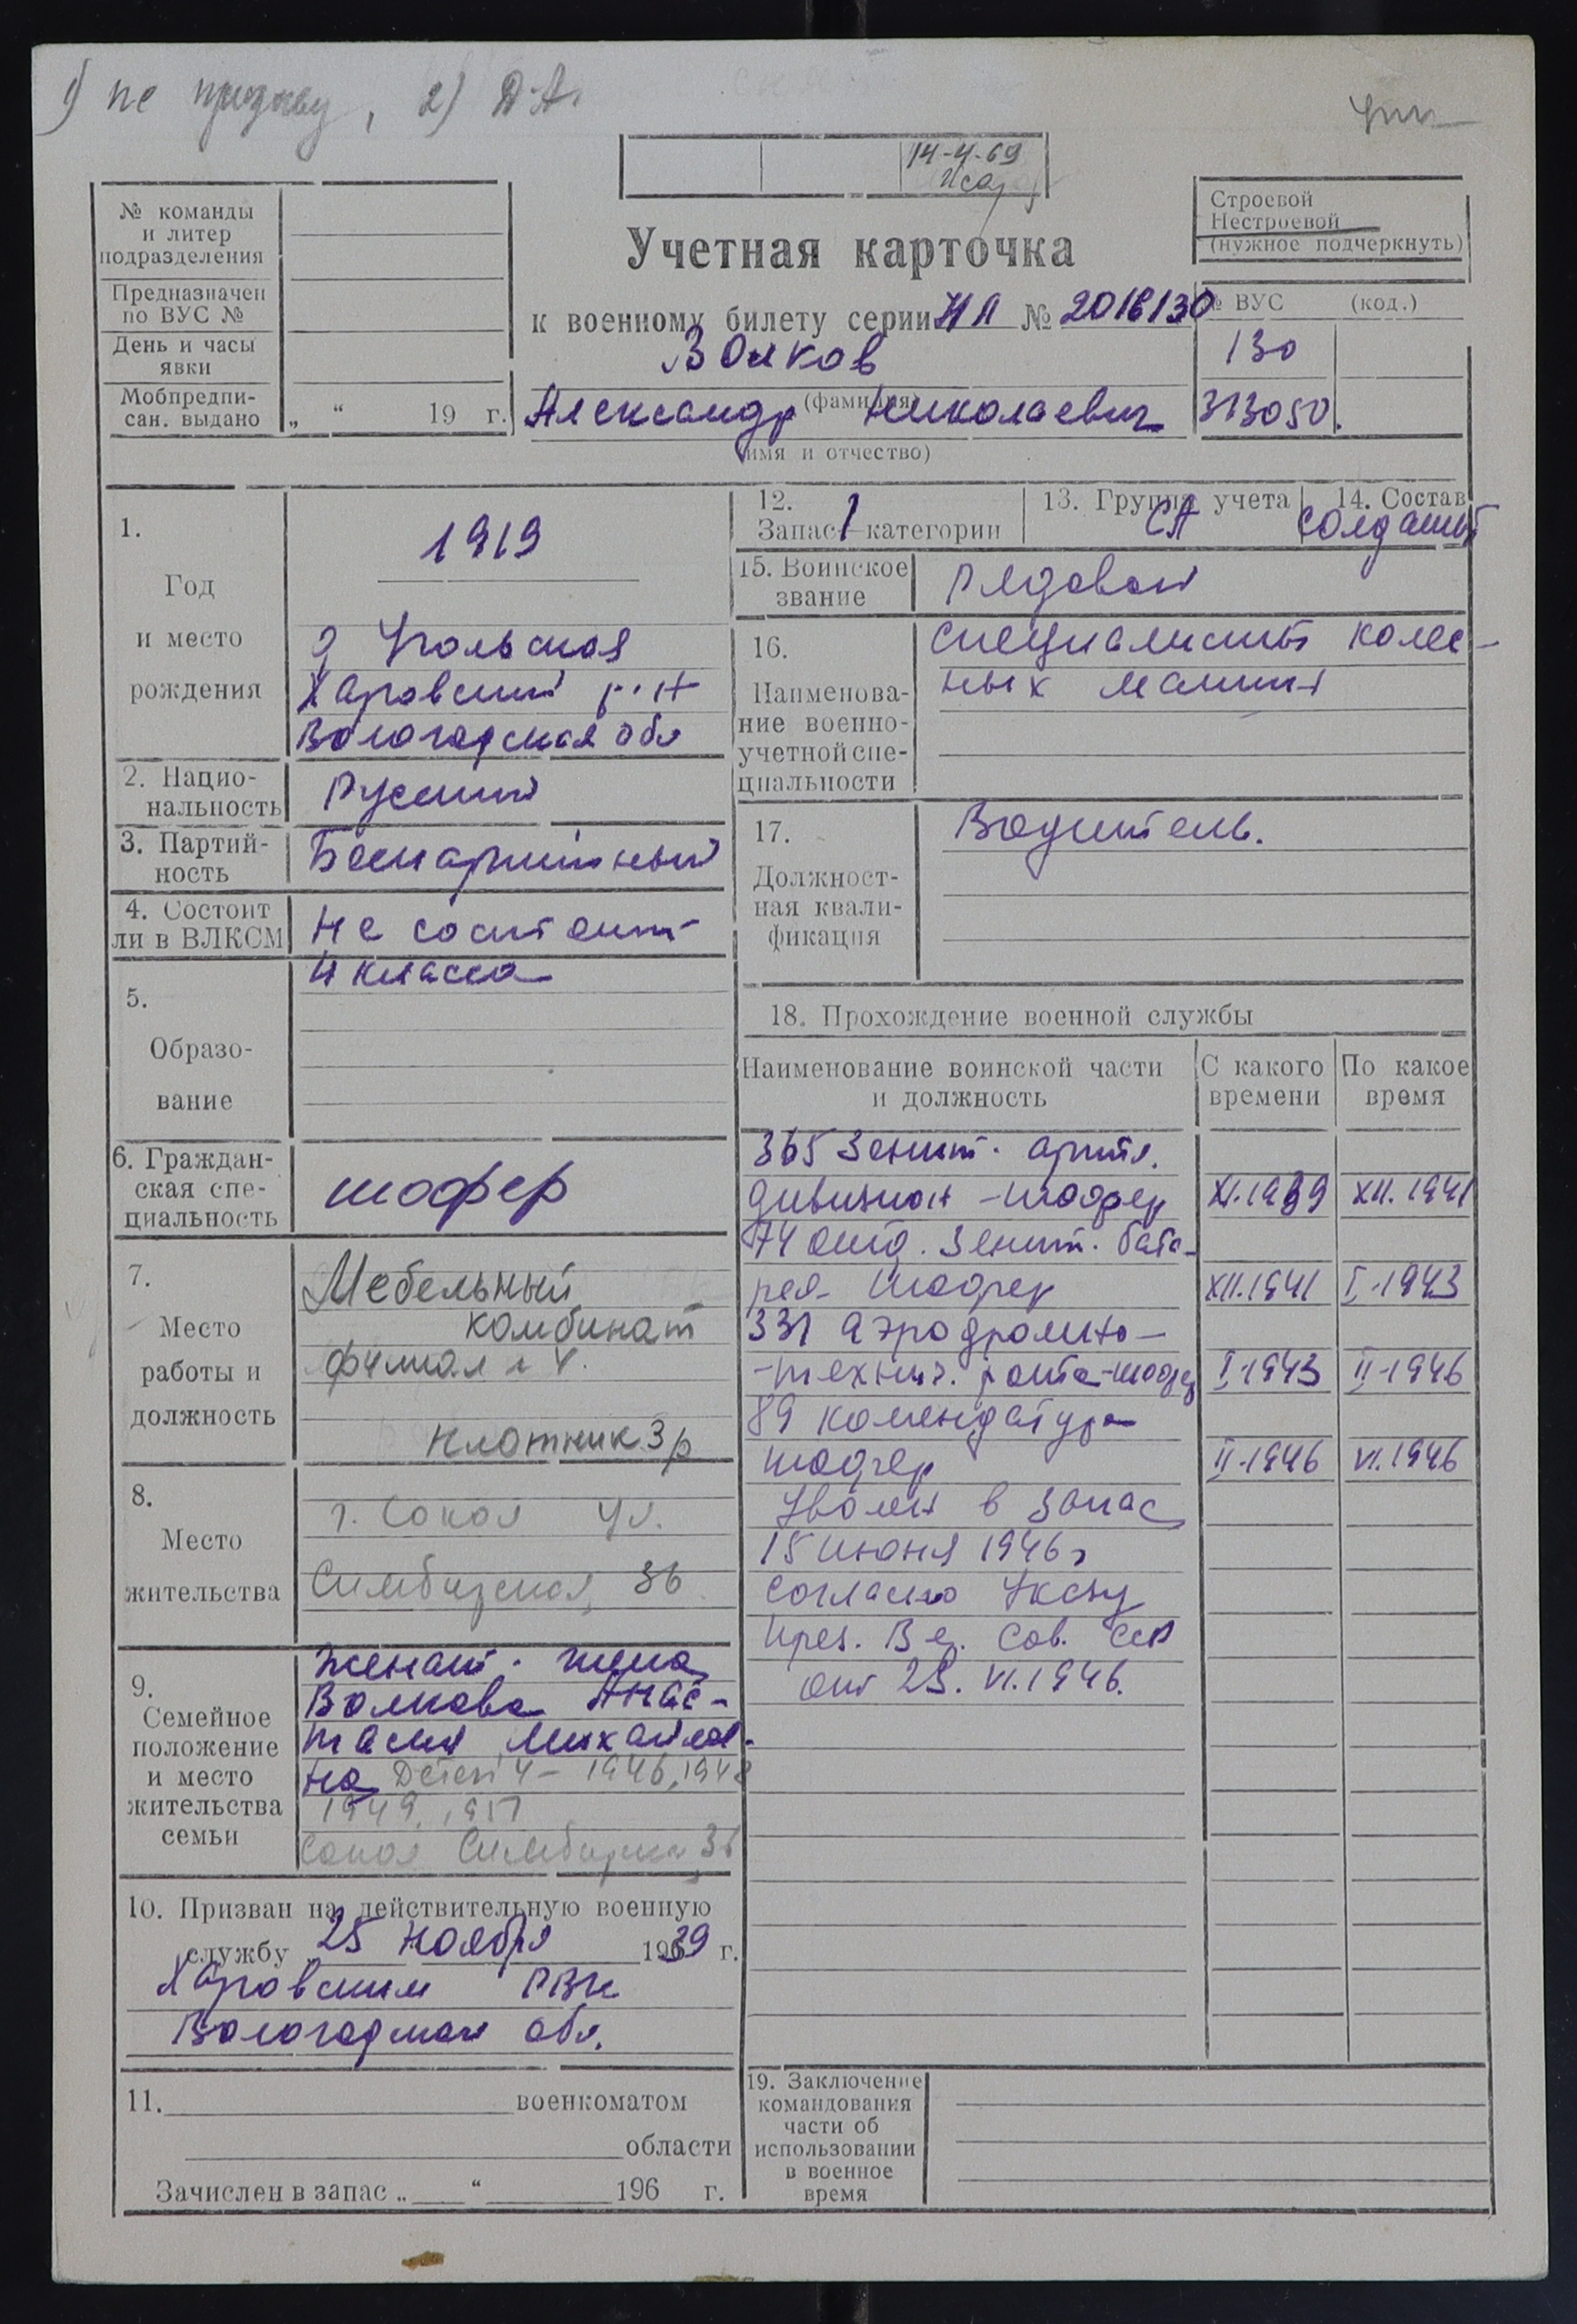 1) не призыву, 2) Д.А.
14-4-69
№ команды
и литер
подразделения
Предназначен
по ВУС №
День и часы
явки
Мобпредпи-
сан. выдано „ “ 19 г.
Строевой
Нестроевой
(нужное подчеркнуть)
Учетная карточка
к военному билету серии НЛ № 2016130
Волков
(фамилия)
Александр Николаевич
(имя и отчество)
№ ВУС (код.)
130
313050.
1.
Год
и место
рождения
1919
д Угольская
Харовский р-н
Вологодская обл
2. Нацио-
нальность
Русский
3. Партий-
ность
Беспартийный
4. Состоит
ли в ВЛКСМ
Не состоит
5.
Образо-
вание
4 класса
6. Граждан-
ская спе-
циальность
шофер
7.
Место
работы и
должность
Мебельный
комбинат
филиал
плотник 3 р
8.
Место
жительства
г. Сокол ул.
Симбирская, 36
9.
Семейное
положение
и место
жительства
семьи
Женат. жена
Волкова Анас-
тасия Михайлов-
на Детей 4 – 1946, 1948
1949, 1951
Сокол Симбирская 36
10. Призван на действительную военную
службу 25 Ноября 1939 г.
Харовским РВК
Вологодской обл.
11. военкоматом
области
Зачислен в запас „ “ 196 г.
12.
Запас 1 категории
13. Группа учета
СА
14. Состав
солдаты
15. Воинское
звание
Рядовой
16.
Наименова-
ние военно-
учетной спе-
циальности
специалисты колес-
ных машин
17.
Должност-
ная квали-
фикация
Водитель.
18. Прохождение военной службы
Наименование воинской части
и должность
С какого
времени
По какое
время
365 Зенит. артил.
дивизион - шофер XI.1939 XII.1941
74 отд. Зенит. бата-
рея- шофер XII.1941 I-1943
331 аэродромно-
-технич. рота-шофер I-1943 II-1946
89 комендатура
шофер II-1946 VI.1946
Уволен в запас
15 июня 1946 г
согласно Указу
През. Вер. Сов. ССР
от 2 . VI.1946.
19. Заключение
командования
части об
использовании
в военное
время